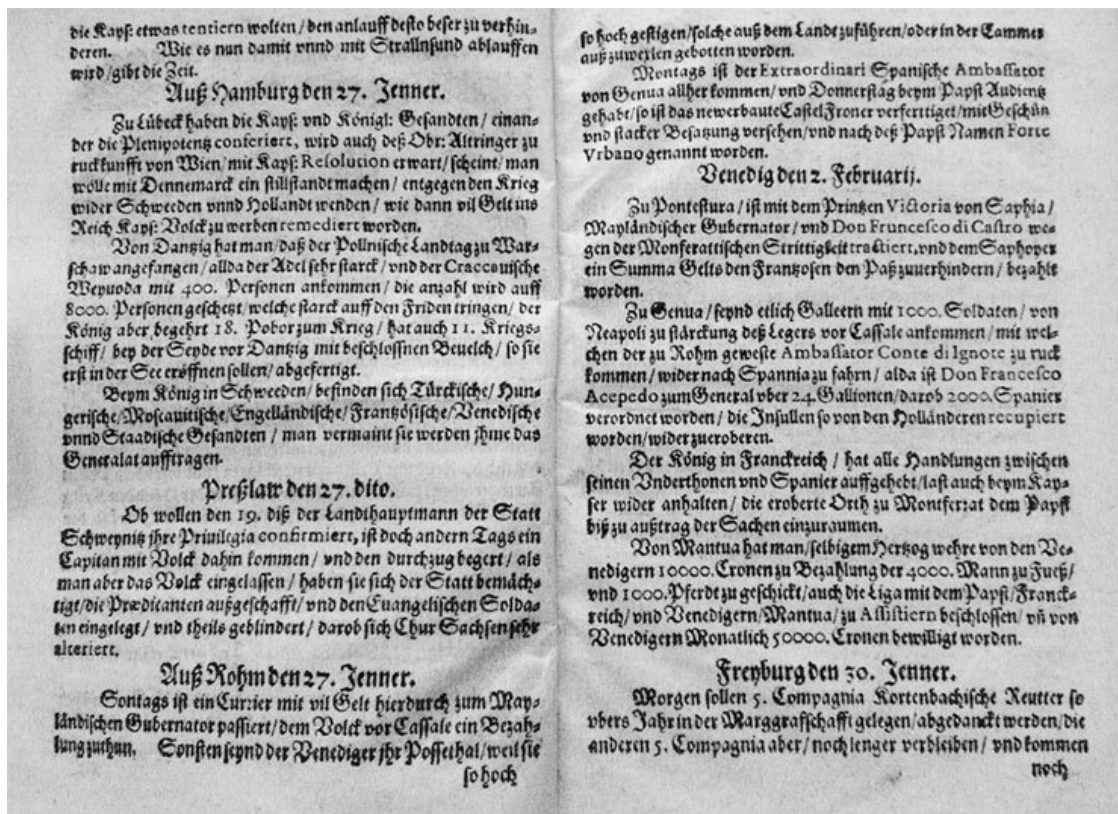 die Kays: etwas tentiern wolten / den anlauff desto beser zu verhin-
deren. Wie es nun damit vnnd mit Strallnsund ablauffen
wird / gibt die Zeit.
Auß Hamburg den 27. Jenner.
Zu Lübeck haben die Kays: vnd Königl: Gesandten / einan-
der die Plenipotentz conferiert, wird auch deß Obr: Altringer zu
ruckkunfft von Wien / mit Kays: Resolution erwart / scheint / man
wölle mit Dennemarck ein stillstandt machen / entgegen den Krieg
wider Schweeden vnnd Hollandt wenden / wie dann vil Gelt ins
Reich Kays: Volck zu werben remediert worden.
Von Dantzig hat man / daß der Pollnische Landtag zu War-
schaw angefangen / allda der Adel sehr starck / vnd der Craccouische
Weyuoda mit 400. Personen ankommen / die anzahl wird auff
8000. Personen geschetzt / welche starck auff den Friden tringen / der
König aber begehrt 18. Pobor zum Krieg / hat auch 11. Kriegs-
schiff / bey der Seyde vor Dantzig mit beschlossnen Beuelch / so sie
erst in der See eröffnen sollen / abgefertigt.
Beym König in Schweeden / befinden sich Türckische / Hun-
gerische / Moscauitische / Engelländische / Frantzösische / Venedische
vnnd Staadische Gesandten / man vermaint sie werden jhme das
Generalat aufftragen.
Preßlaw den 27. dito.
Ob wollen den 19. diß der Landthauptmann der Statt
Schweynitz jhre Priuilegia confirmiert, ist doch andern Tags ein
Capitan mit Volck dahin kommen / vnd den durchzug begert / als
man aber das Volck eingelassen / haben sie sich der Statt bemäch-
tigt / die Præditanten außgeschafft / vnd den Euangelischen Solda-
ten eingelegt / vnd theils geblindert / darob sich Chur Sachsen sehr
alteriert.
Auß Rohm den 27. Jenner.
Sontags ist ein Currier mit vil Gelt hierdurch zum May-
ländischen Gubernator passiert / dem Volck vor Cassale ein Bezah-
lung zuthun. Sonsten seynd der Venediger jhr Posset hal / weil sie
so hoch
so hoch gestigen / solche auß dem Landt zuführen / oder in der Cammer
auß zuwexlen gebotten worden.
Montags ist der Extraordinari Spanische Ambassator
von Genua allher kommen / vnd Donnerstag beym Papst Audientz
gehabt / so ist das newerbaute Castel Froner verfertiget / mit Geschütz
vnd starcker Besatzung versehen / vnd nach deß Papst Namen Forte
Vrbano genannt worden.
Venedig den 2. Februarij.
Zu Pontestura / ist mit dem Printzen Victoria von Saphia /
Mayländischer Gubernator / vnd Don Fruncesco di Castro we-
gen der Monferattischen Strittigkeit tractiert, vnd dem Saphoyer
ein Summa Gelts den Frantzosen den Paß zuuerhindern / bezahlt
worden.
Zu Genua / seynd etlich Galleern mit 1000. Soldaten / von
Neapoli zu stärckung deß Legers vor Cassale ankommen / mit wel-
chen der zu Rohm geweste Ambassator Conte di Ignote zu ruck
kommen / wider nach Spannia zu fahrn / alda ist Don Francesco
Acepedo zum General vber 24. Gallionen / darob 2000. Spanier
verordnet worden / die Insullen so von den Holländeren recupiert
worden / wider zueroberen.
Der König in Franckreich / hat alle Handlungen zwischen
seinen Vnderthonen vnd Spanier auffgehebt / last auch beym Kay-
ser wider anhalten / die eroberte Orth zu Montferrat dem Papst
biß zu außtrag der Sachen einzuraumen.
Von Mantua hat man / selbigem Hertzog wehre von den Ve-
nedigern 10000. Cronen zu Bezahlung der 4000. Mann zu Fueß /
vnd 1000. Pferdt zu geschickt / auch die Liga mit dem Papst / Franck-
reich / vnd Venedigern / Mantua / zu Assistiern beschlossen / vñ von
Venedigern Monatlich 50000. Cronen bewilligt worden.
Freyburg den 30. Jenner.
Morgen sollen 5. Compagnia Kortenbachische Reutter so
vbers Jahr in der Marggrafschafft gelegen / abgedanckt werden / die
anderen 5. Compagnia aber / noch lenger verbleiben / vnd kommen
noch